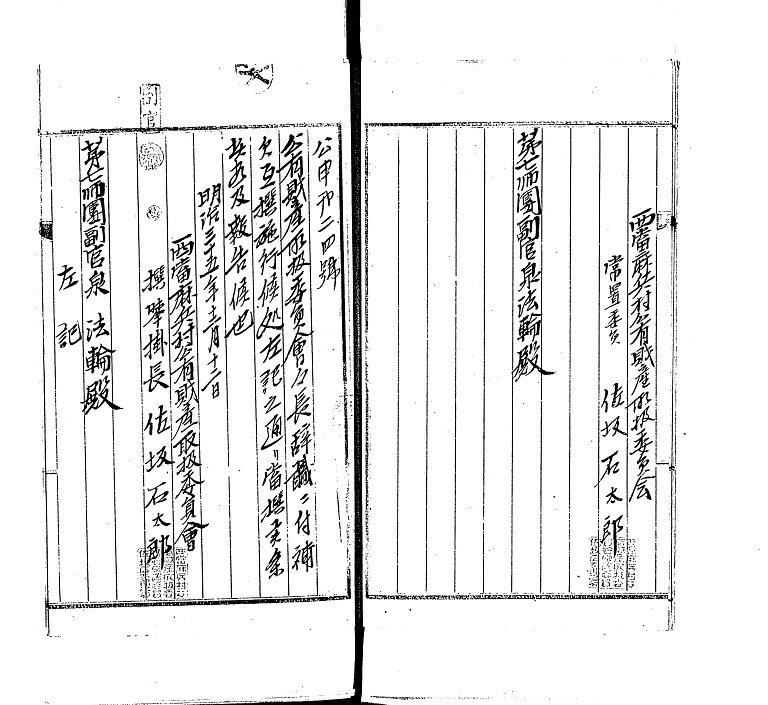 西當麻兵村公有財産取扱委員会
常置委員 佐坂石太郎
第七師團副官泉法輪殿
公甲第二四號
公有財産取扱委員會々長辞職ニ付補
欠互撰施行候処左記之通リ當撰美候
此段及報告候也
明治三十五年十二月十二日
西當麻兵村公有財産取扱委員會
撰擧掛長 佐坂石太郎
第七師團副官泉 法輪殿
左記